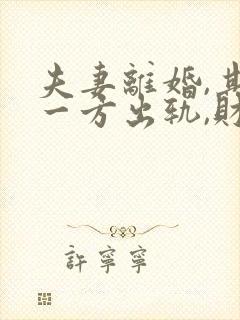 夫妻離婚,其
一方出軌,財
許寧寧